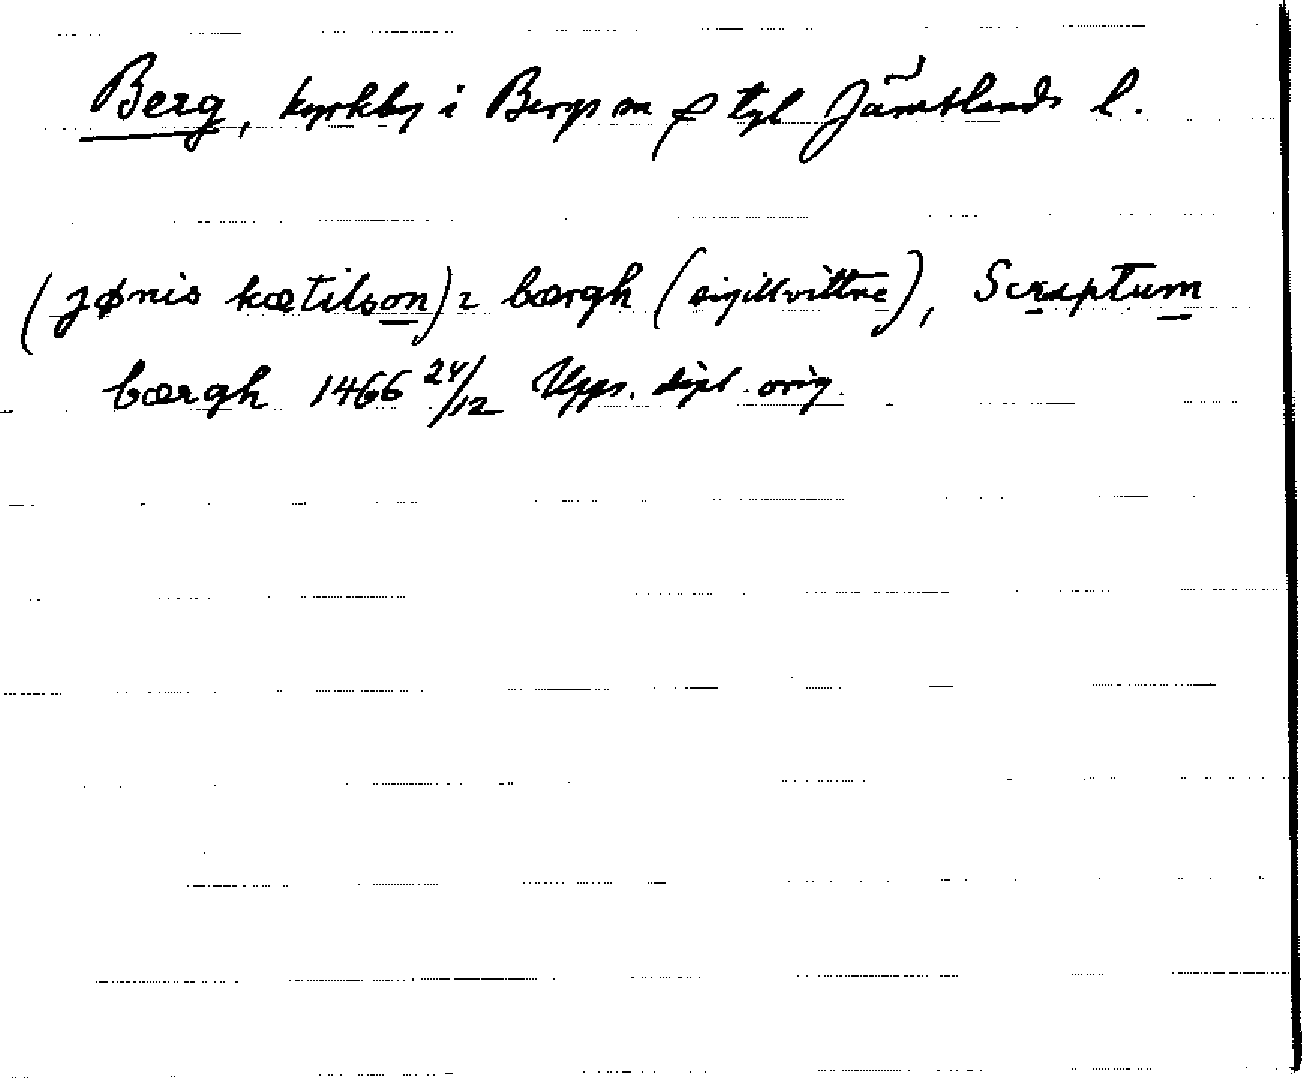 Berg, kyrkby i Bergs sn o tgl Jämtlands l.
(jønis kætilson) i bærgh (sigillvittne), Scriptum
bærgh 1466 24/12 Upps. dipl. orig